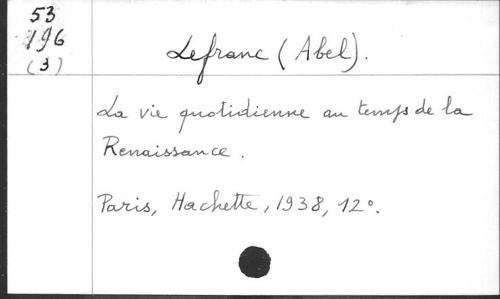 53
196
(3)
Lefranc (Abel).
La vie quotidienne au temps de la
Renaissance.
Paris, Hachette, 1938, 12°.